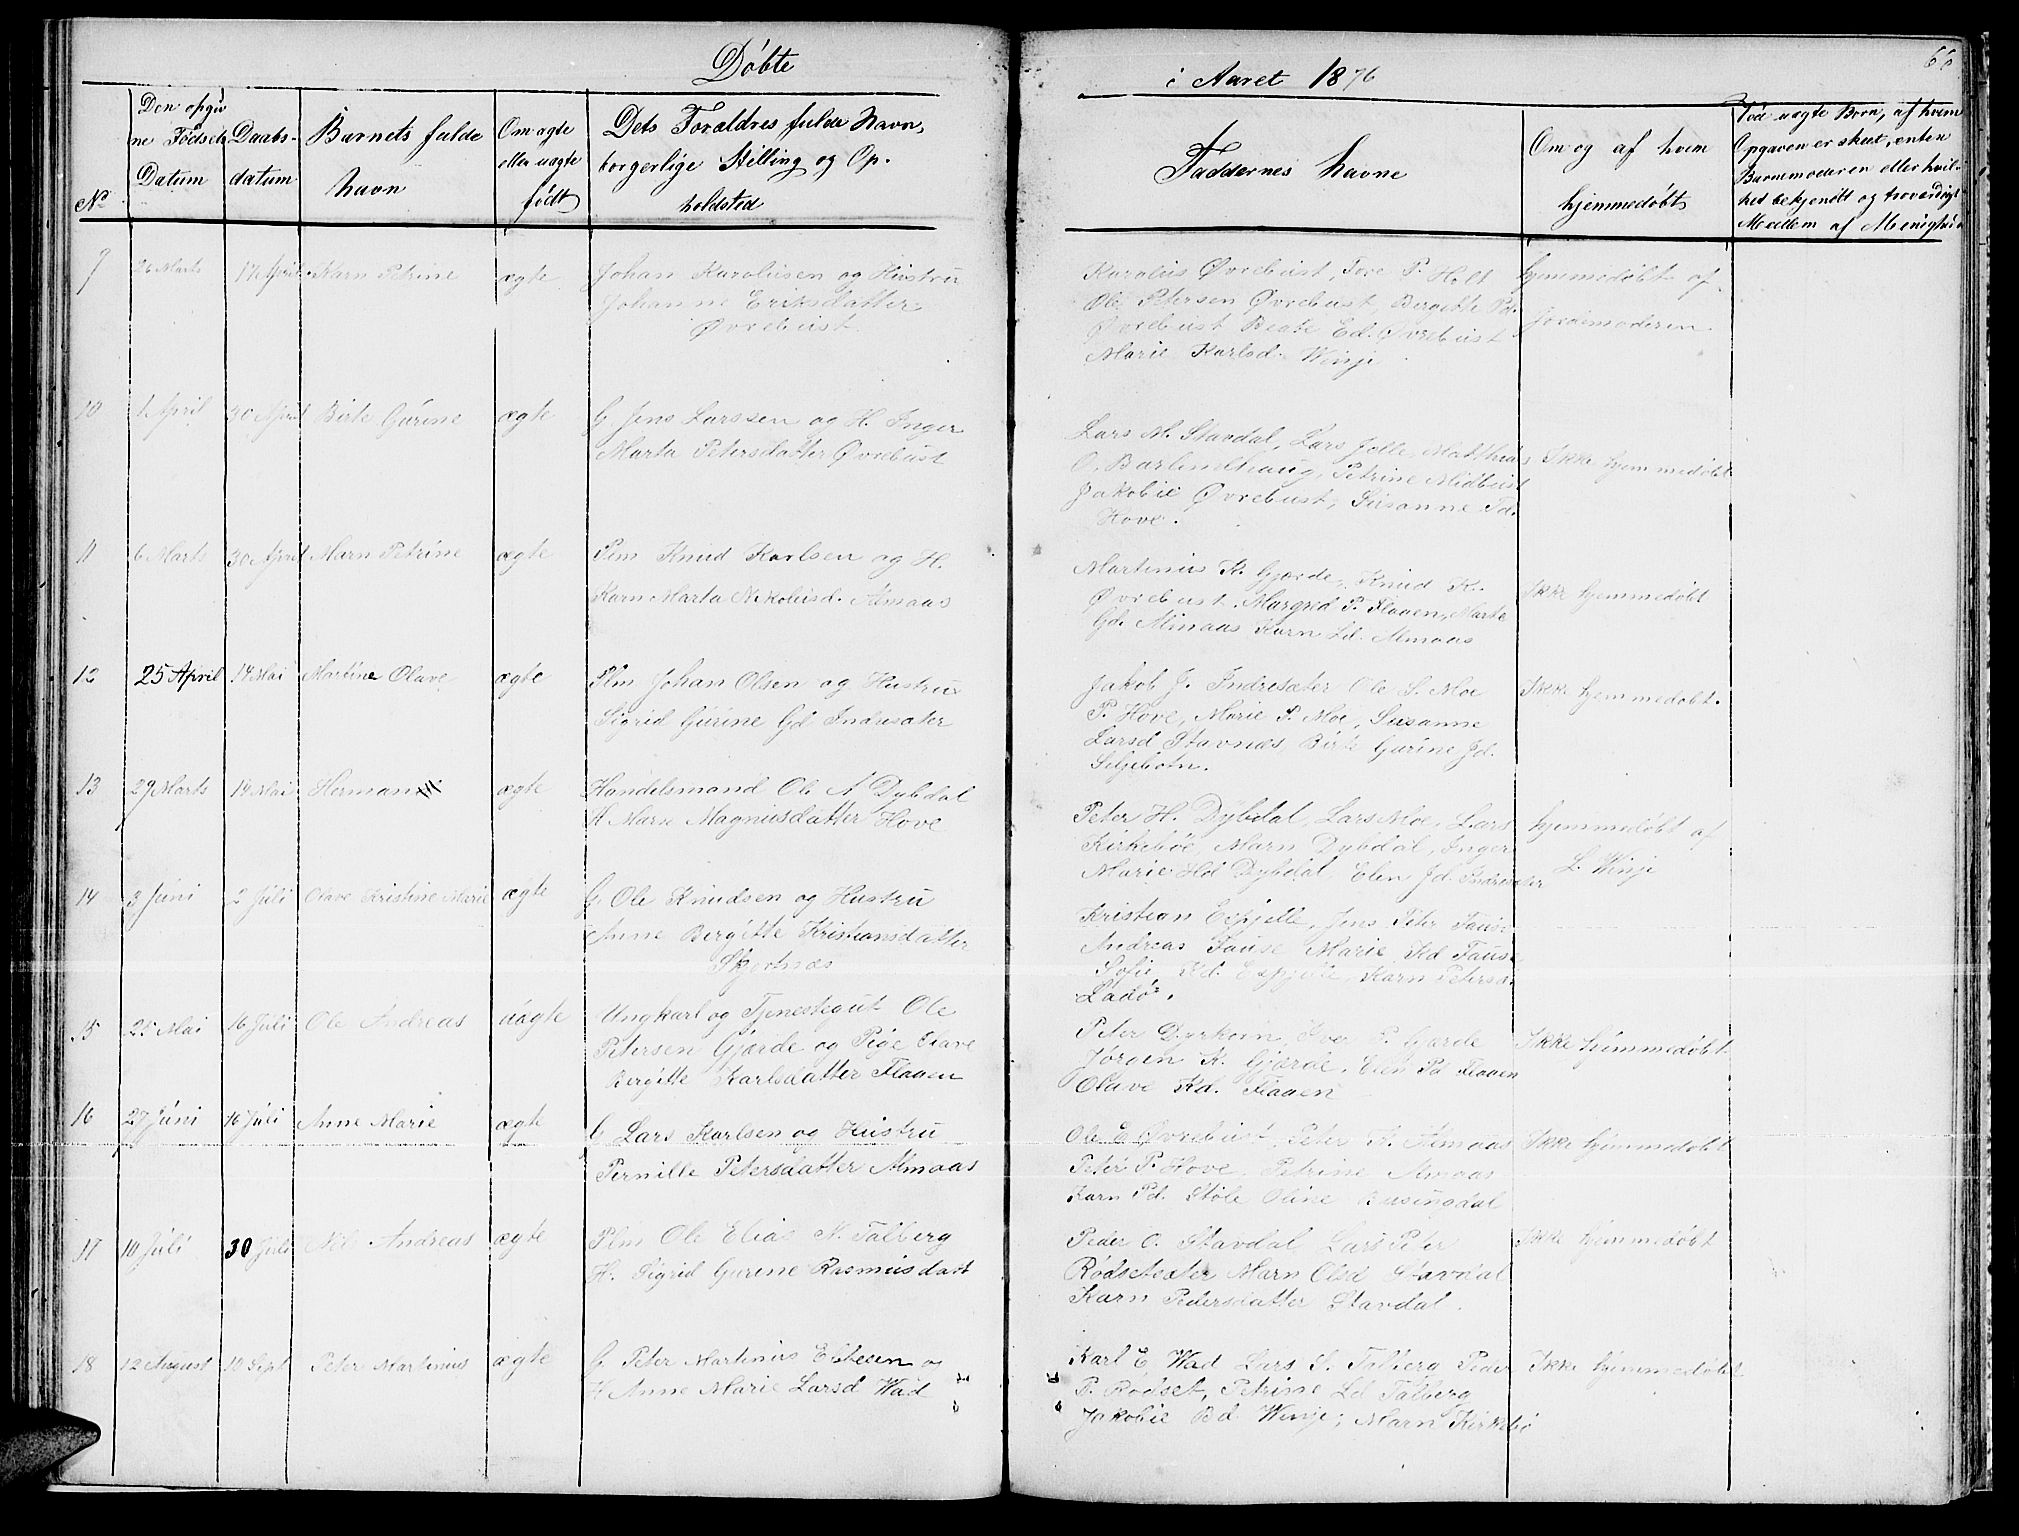 Döbte
i Aaret 1876
66
No
Den opgiv
ne Födsels
Datum
Daabs-
datum
Barnets fulde
havn
Om ægte
eller uægte
född
Dets Forældres fulde Navn,
borgerlige Stilling og Op.
holdsted
Faddernes Navne
Om og af hvem
hjemmedøbt
Ved uægte Börn, af hvem
Opgaven er skeet, enten
Barnemoderen eller hvil-
ket bekjendt og troværdigt
Medlem af Menighed
9 26 Marts 17 April Karn Petrine ægte
Johan Karolusen og Hustru
Johanne Eriksdatter
Øvrebust.
Karolus Øvrebust, Tore P. Holt
Ole Petersen Øvrebust, Bergitte Pd.
Øvrebust Beate Ed. Øvrebust
Marie Karlsd. Winje
hjemmedøbt af
Jordemoderen
10 1 April 30 April Birte Gurine ægte
G Jens Larssen og H. Inger
Marta Petersdatter Øvrebust
Lars M. Stavdal, Lars Jelle, Matthias
O. Barlindhaug, Petrine Midbust
Jakobie Øvrebust, Susanne Pd.
Hove.
Ikke hjemmedøbt
11 6 Marts 30 April Marn Petrine ægte
Plm Knud Karlsen og H.
Karn Marta Nikolusd. Almaas
Martinus K. Gjærde, Knud K.
Øvrebust. Margred P. Flaaen, Marte
Gd. Almaas Karn Ld. Almaas
Ikke hjemmedøbt
12 25 April 14 Mai Martine Olave ægte
Plm Johan Olsen og Hustru
Sigrid Gurine Gd Indresæter
Jakob J. Indresæter Ole S. Moe
P. Hove, Marie P. Moe, Susanne
Larsd Stavnæs Birte Gurine Jd.
Seljebotn.
Ikke hjemmedøbt.
13 29 Marts 14 Mai Herman ægte
Handelsmand Ole A Dybdal
H Marn Magnusdatter Hove
Peter H. Dybdal, Lars Moe, Lars
Kirkeböe, Marn Dybdal, Inger
Marie Hd Dybdal, Elen Jd. Indresæter
hjemmedøbt af
L. Winje
14 3 Juni 2 Juli Olave Kristine Marie ægte
G. Ole Knudsen og Hustru
Anne Bergitte Kristiansdatter
Kristian Espjelle, Jens Peter Tause
Andreas Tause Marie Kd Tause
Sofie Kd. Espjelle, Karn Petersd.
Ladö.
15 25 Mai 16 Juli Ole Andreas uægte
Ungkarl og Tjenestegut Ole
Petersen Gjærde og Pige Elave
Bergitte Karlsdatter Flaaen
Peter Dyrkorn, Iver P. Gjærde
Jørgen K. Gjærde. Elen Pd Flaaen
Olave Kd. Flaaen
Ikke hjemmedøbt
16 27 Juni 16 Juli Anne Marie ægte
G. Lars Karlsen og Hustru
Pernille Petersdatter Almaas
Ole E Øvrebust, Peter K. Almaas
Peter P. Hove, Petrine Almaas
Karn Pd. Støle Oline Busengdal
Ikke hjemmedøbt
17 10 Juli 30 Juli Nils Andreas ægte
Plm Ole Elias N. Talberg
H. Sigrid Gurine Rasmusdatt
Peder O. Stavdal, Lars Peter
Rødsetsæter Marn Olsd Stavdal
Karn Pedersdatter Stavdal.
Ikke hjemmedøbt
18 12 August 10 Sept Peter Martinus ægte
G Peter Martinus Eltesen og
H Anne Marie Larsd Wad
Karl E Wad Lars S. Talberg Peder
P. Rødset, Petrine Ld Talberg
Jakobie Bd Winje, Marn Kirkebø
Ikke hjemmedøbt